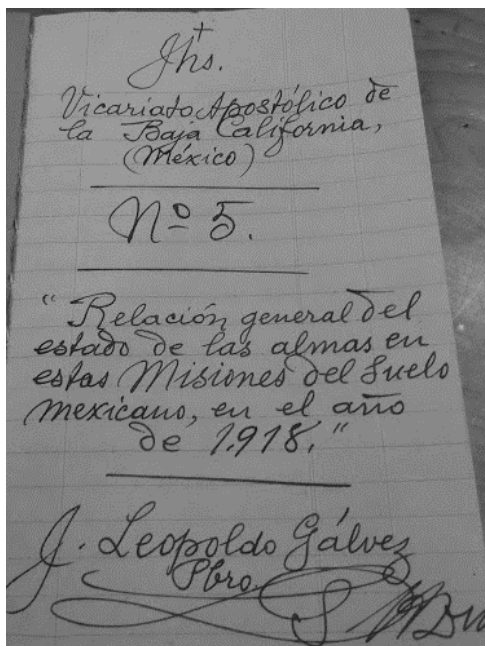 Jhs.
Vicariato Apostólico de
la Baja California,
(México)
Nº 5.
"Relación general del
estado de las almas en
estas Misiones del Suelo
mexicano, en el año
de 1.918."
J. Leopoldo Gálvez
Pbro.